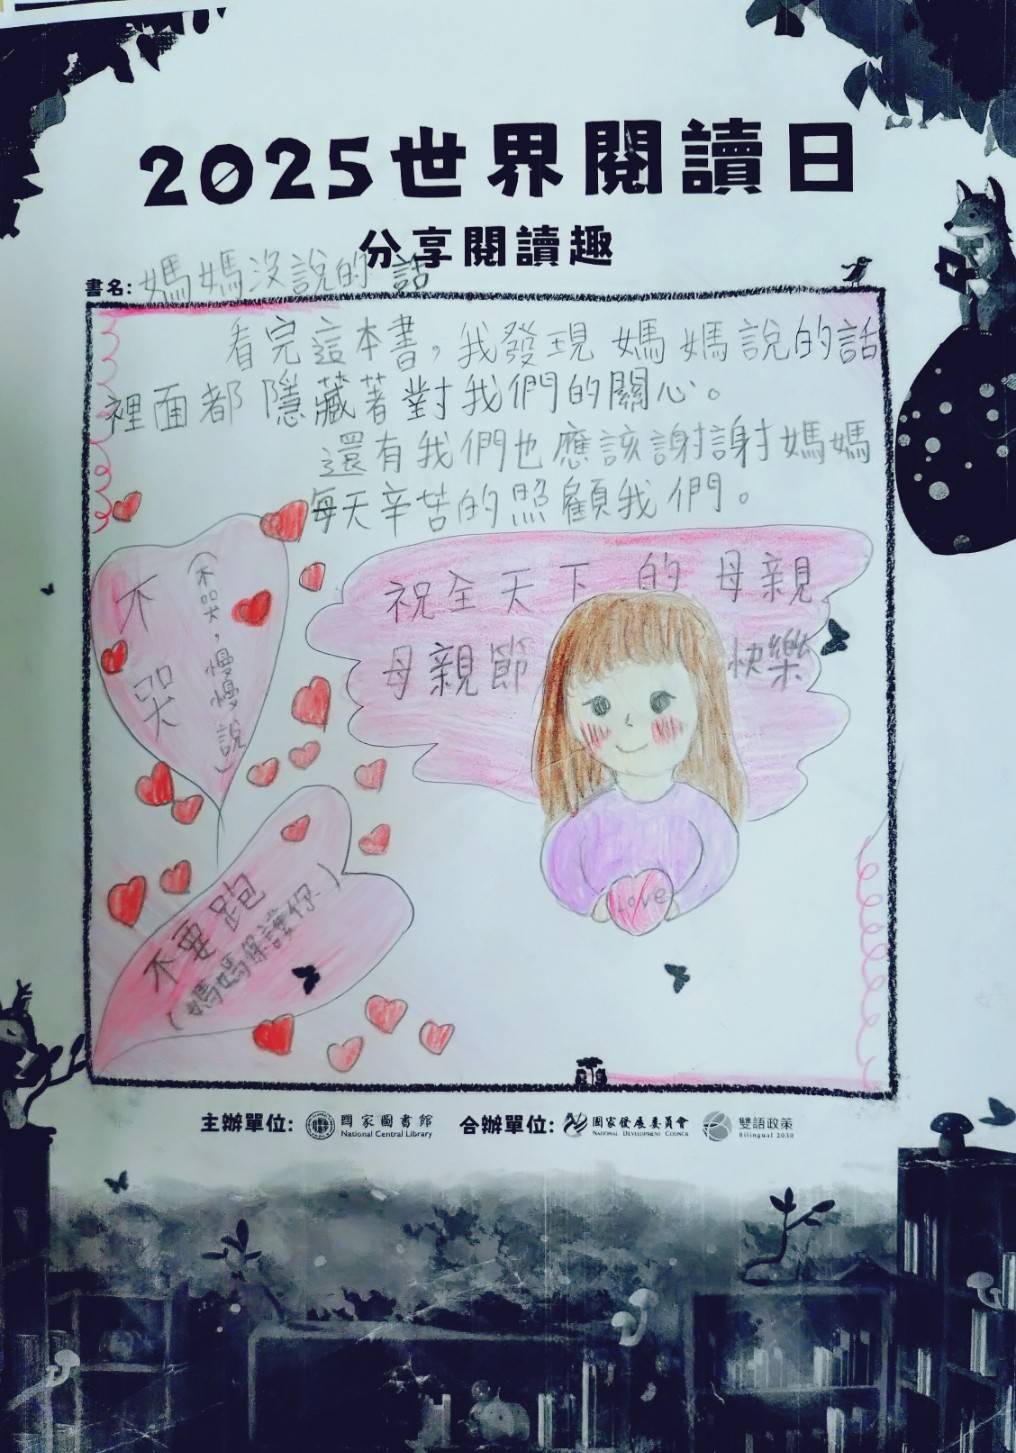 2025世界閱讀日
分享閱讀趣
書名:媽媽沒說的話
看完這本書，我發現媽媽說的話
裡面都隱藏著對我們的關心。
還有我們也應該謝謝媽媽
每天辛苦的照顧我們。
祝全天下的母親
母親節快樂
不哭
(不哭，慢慢說)
不要跑
(媽媽保護你)
Love
主辦單位: 國家圖書館 National Central Library 合辦單位: 國家發展委員會 National Development Council 雙語政策 Bilingual 2030